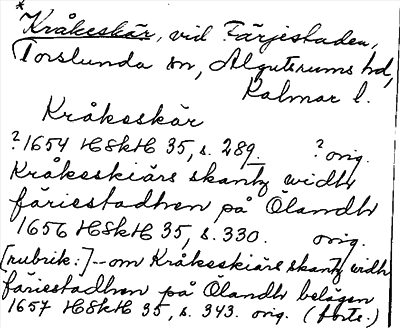 *Kråkeskär, vid Färjestaden,
Torslunda sn, Algutsrums hd,
Kalmar l.
Kråkeskär
?1654 HSkH 35, s. 289. ?orig.
Kråkeskiärs skantz widh
färiestadhen på Ölandh
1656 HSkH 35, s. 330. orig.
[rubrik:]--om Kråkeskiärs skantz widh
färiestadhen på Ölandh belägen
1657 HSkH 35, s. 343. orig. (forts.)